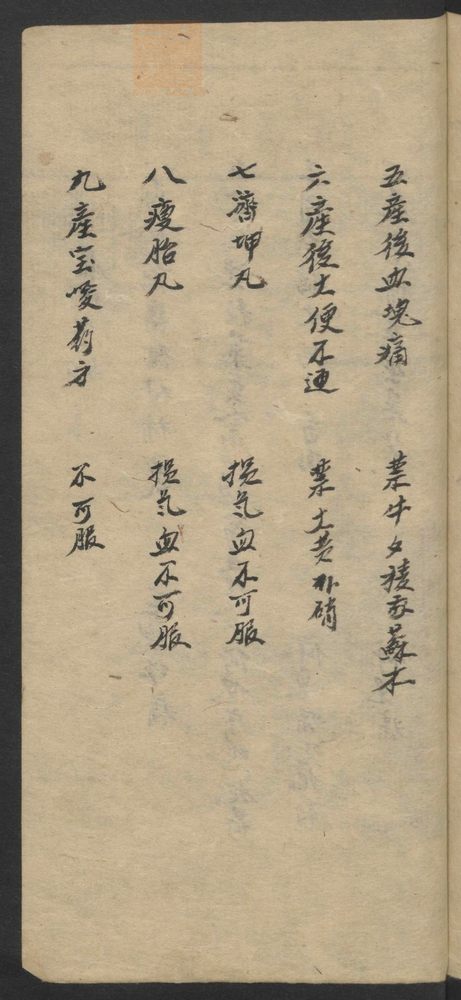 五產後血塊痛 禁牛夕稜莪蘇木
六產後大便不通 禁大黄朴硝
七濟坤丸 損气血不可服
八瘦胎丸 損气血不可服
九產宝喫药方 不可服